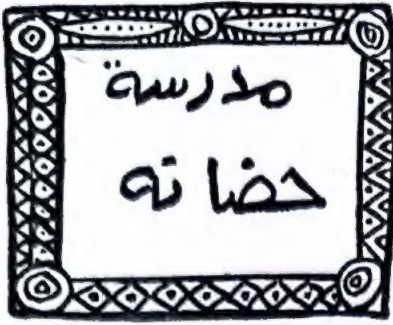 مدرسة
حضانه